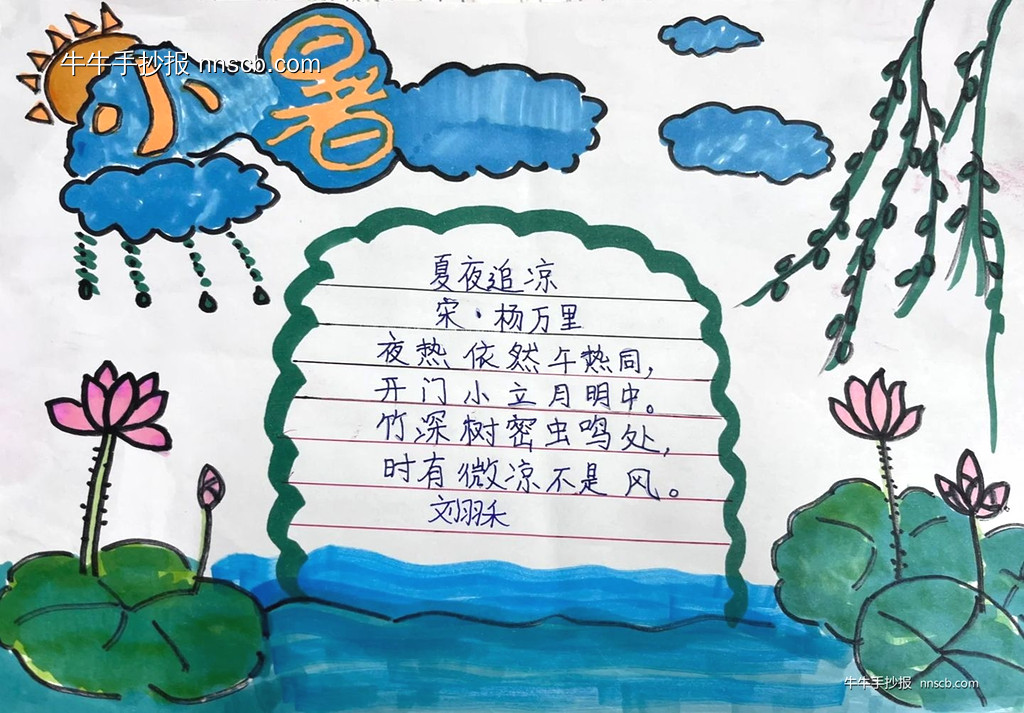 小暑
牛牛手抄报 nnscb.com
夏夜追凉
宋·杨万里
夜热依然午热同，
开门小立月明中。
竹深树密虫鸣处，
时有微凉不是风。
刘羽禾
牛牛手抄报 nnscb.com